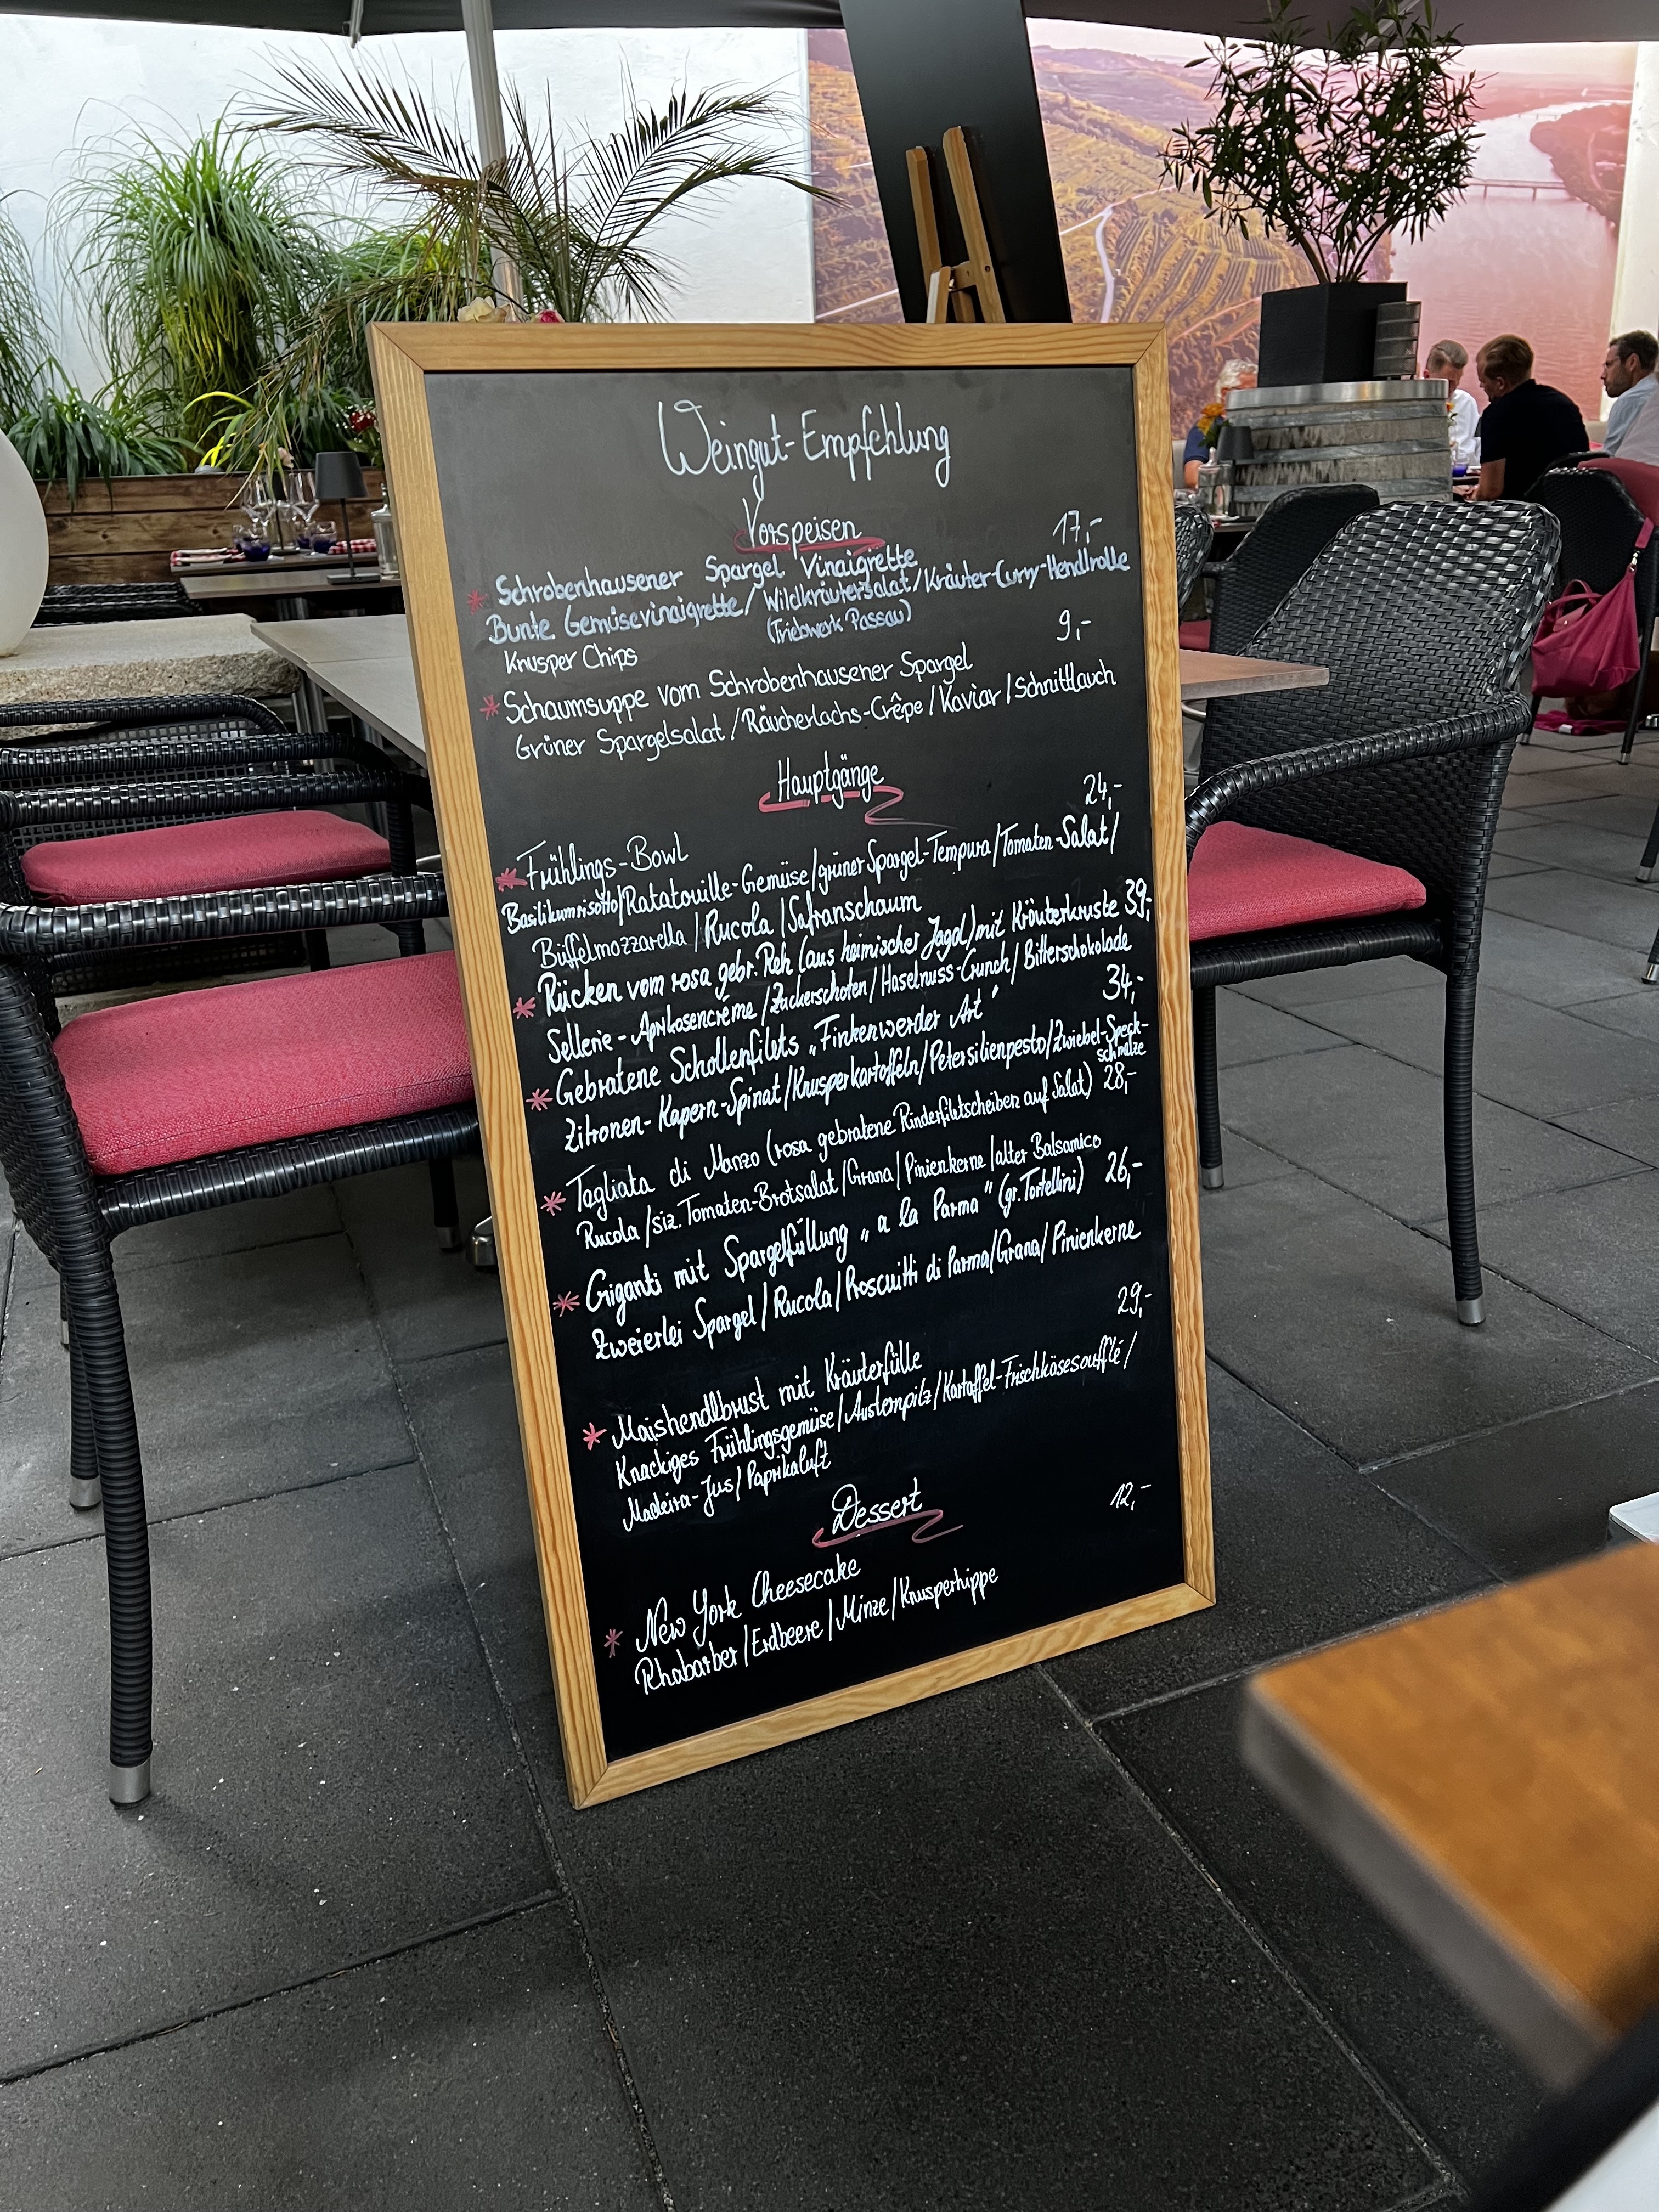 Weingut-Empfehlung
Vorspeisen
17,-
* Schrobenhausener Spargel Vinaigrette
Bunte Gemüsevinaigrette / Wildkräutersalat / Kräuter-Curry-Hendlrolle
(Triebwerk Passau)
Knusper Chips
9,-
* Schaumsuppe vom Schrobenhausener Spargel
Grüner Spargelsalat / Räucherlachs-Crêpe / Kaviar / Schnittlauch
Hauptgänge
24,-
* Frühlings-Bowl
Basilikumrisotto / Ratatouille-Gemüse / grüner Spargel-Tempura / Tomaten-Salat /
Büffelmozzarella / Rucola / Safranschaum
* Rücken vom rosa gebr. Reh (aus heimischer Jagd) mit Kräuterkruste 39,-
Sellerie-Aprikosencrème / Zuckerschoten / Haselnuss-Crunch / Bitterschokolade
34,-
* Gebratene Schollenfilets „Finkenwerder Art"
Zitronen-Kapern-Spinat / Knusperkartoffeln / Petersilienpesto / Zwiebel-Speck-
schmalze
* Tagliata di Manzo (rosa gebratene Rinderfiletscheiben auf Salat) 28,-
Rucola / siz. Tomaten-Brotsalat / Grana / Pinienkerne / alter Balsamico
* Giganti mit Spargelfüllung „a la Parma" (gr. Tortellini) 26,-
Zweierlei Spargel / Rucola / Proscuitti di Parma / Grana / Pinienkerne
29,-
* Maishendlbrust mit Kräuterfülle
Knackiges Frühlingsgemüse / Austernpilz / Kartoffel-Frischkäsesoufflé /
Madeira-Jus / Paprikaluft
Dessert
12,-
* New York Cheesecake
Rhabarber / Erdbeere / Minze / Knusperhippe